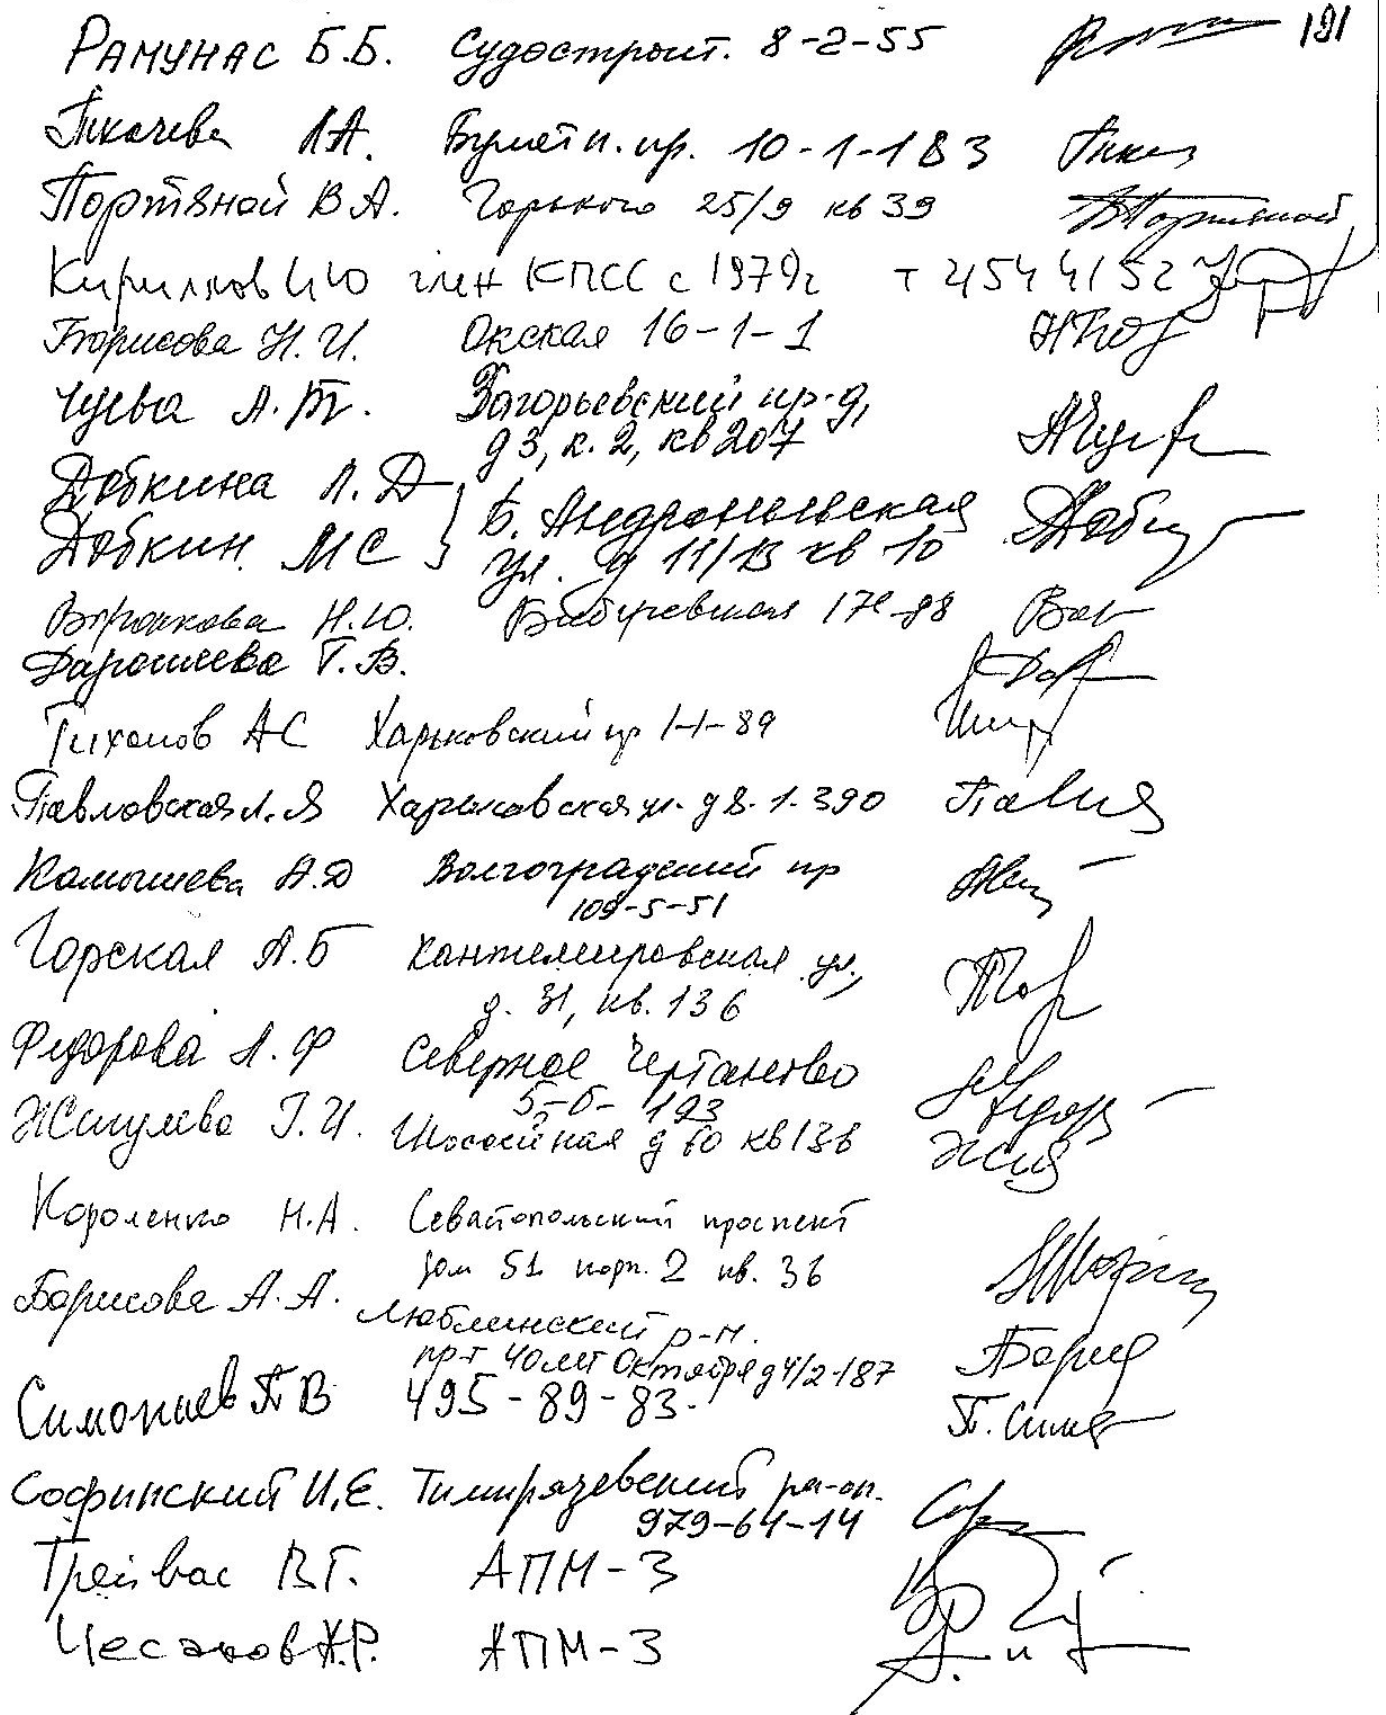 191
РАМУНАС Б.Б. Судостроит. 8-2-55
Ткачева Л.А. пр. 10-1-183
Портяной В.А. Горького 25/9 кв 39 ВПортяной
Кириллов И Ю член КПСС с 1979г т 4544152
Борисова Н.И. Окская 16-1-1
Чуева А.Т. Загорьевский пр-д,
д 3, к. 2, кв 207
Добкина Л.Д
Добкин. М С } Б. Андроньевская
ул. д 11/13 кв 10
Н.Ю. Бибиревская 17в-98
Т.В.
Тихонов АС Харьковский пр 1-1-89
Павловская Л.Я Харьковская ул. д 8.1.390
Камышева А.Д Волгоградский пр
109-5-51
Горская А.Б Кантемировская ул.,
д. 31, кв. 136
Федорова Л.Ф Северное Чертаново
5-б- 193
Жигулева Г.И. Шоссейная д 60 кв 136
Короленко Н.А. Севастопольский проспект
дом 51 корп. 2 кв. 36
Борисова А.А. Люблинский р-н.
пр-т 40 лет Октября д 4/2-187
П В 495-89-83.
Софинский И.Е. Тимирязевский
979-64-14
Трейвас В.Г. АПМ-3
А.Р. АПМ-3